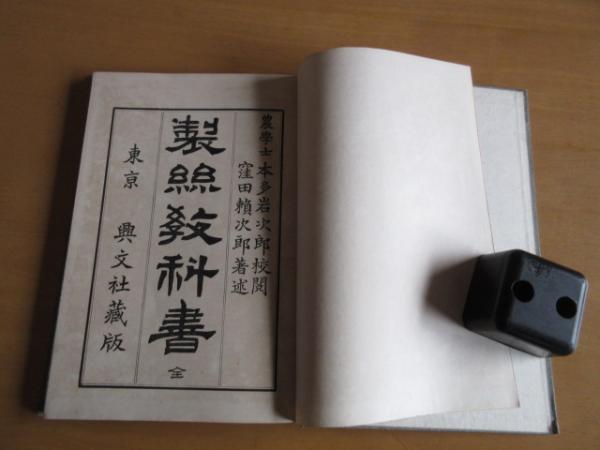 農學士本多岩次郎校閲
窪田賴次郎著述
製絲教科書全
東京 興文社藏版